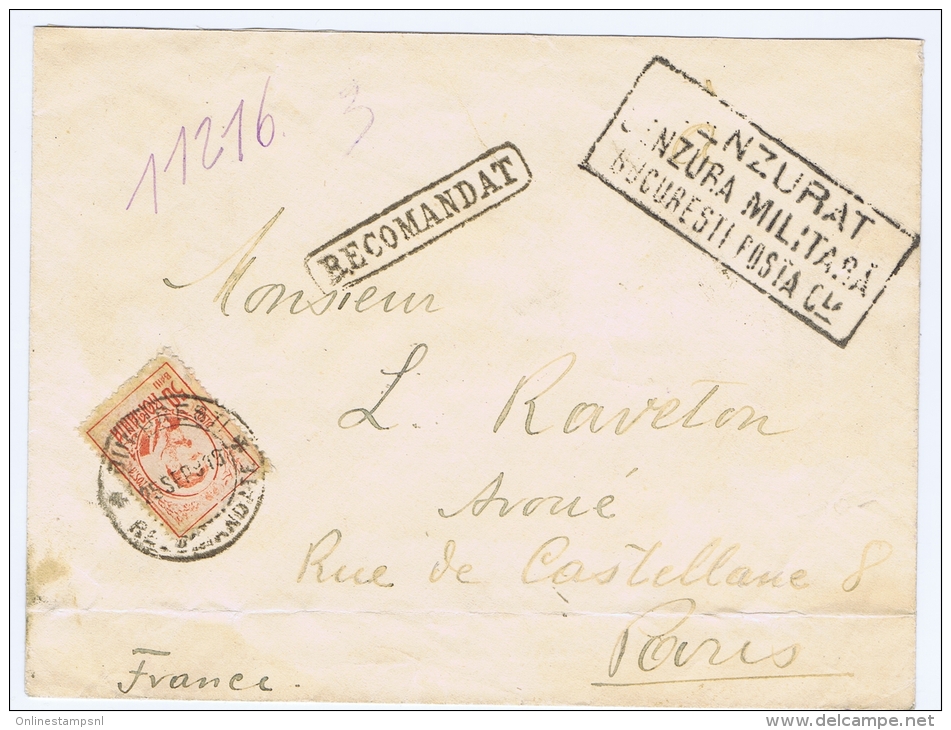 11216. 3
RECOMANDAT
CENZURAT
CENZURA MILITARĂ
BUCURESTI POSTA
Monsieur
L. Raveton
Avoué
Rue de Castellane 8
Paris
France.
ROMANIA
50
BANI
BUCUREȘTI
SEP 919
RECOMANDATE
Onlinestampsnl
http://www.delcampe.net